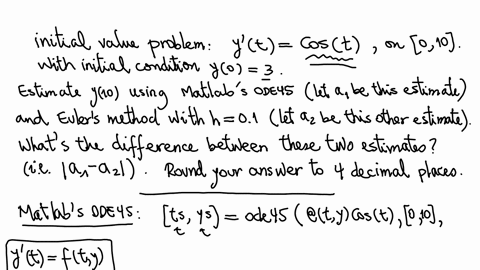 initial value problem: y'(t) = Cos(t), on [0,10].
With initial condition y(0) = 3.
Estimate y(10) using Matlab's ODE45 (let a₁ be this estimate)
and Euler's method with h=0.1 (let a₂ be this other estimate).
What's the difference between these two estimates?
(i.e. |a₁-a₂|). Round your answer to 4 decimal places.
Matlab's ODE45: [ts, ys] = ode45(@(t,y)Cos(t), [0,10],
y'(t) = f(t,y)